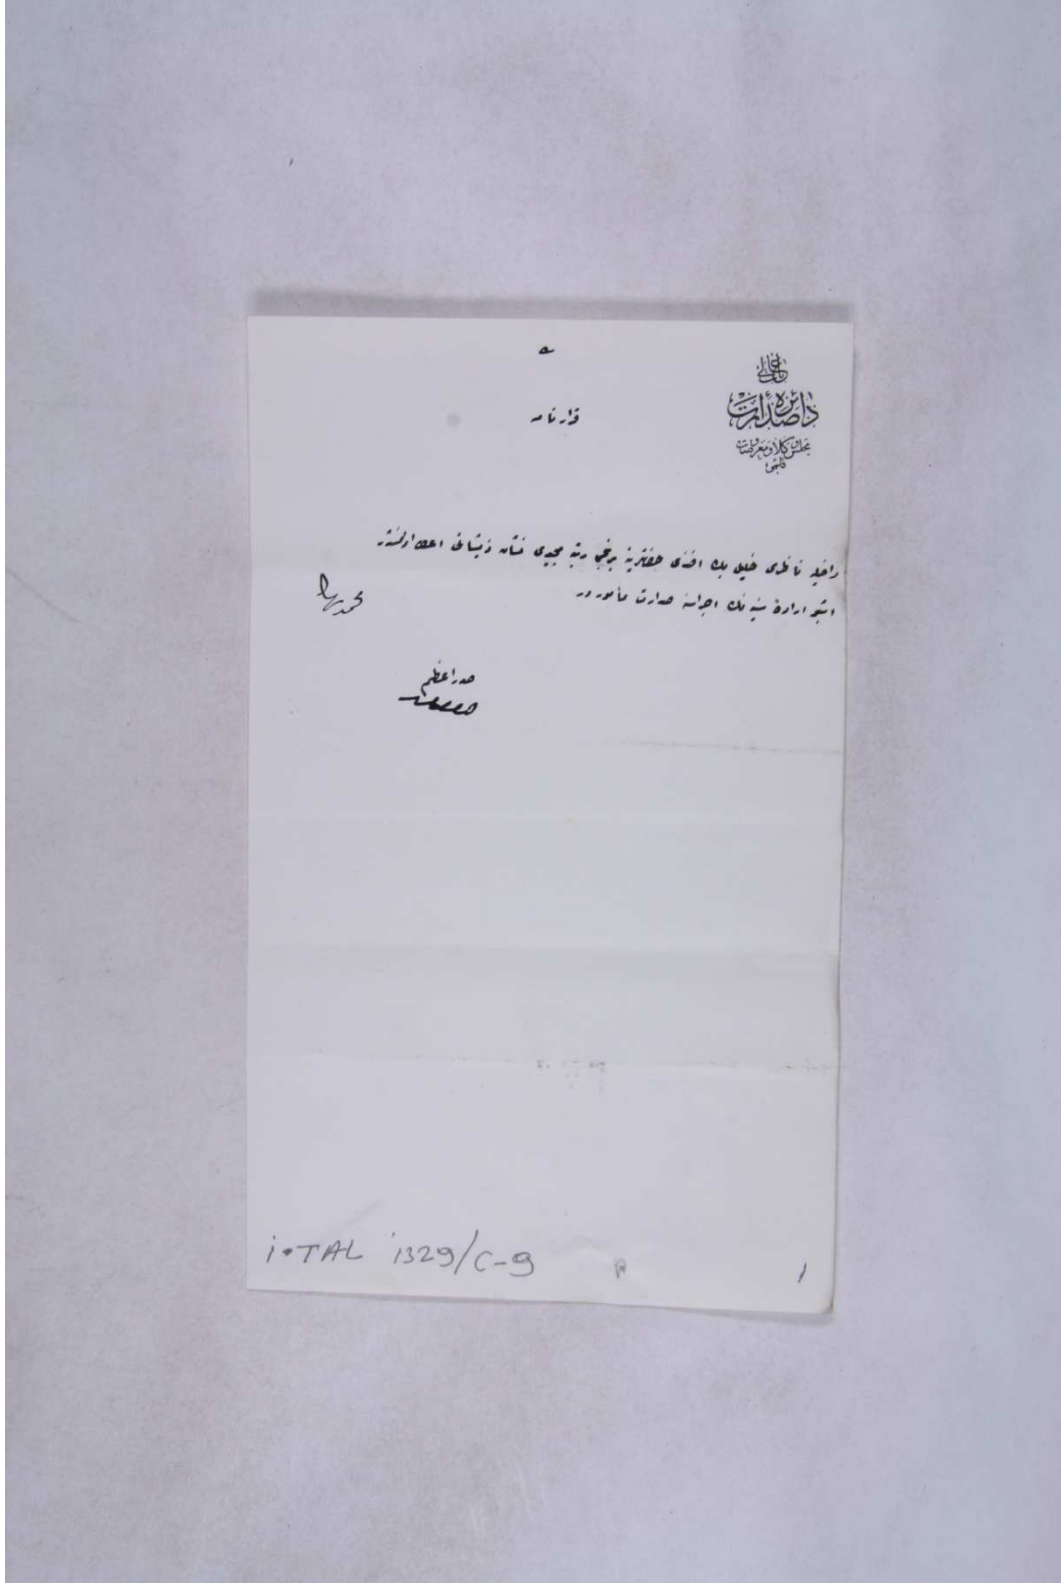 باب عالی
دائره صدارت
مجلس وكلا ومعروضات
قلمی
قرارنامه
داخلیه ناظری خلیل بك افندی حضرتلرینه برنجی رتبه مجیدی نشان ذیشانی اعطا اولنمشدر
اشبو اراده سنیه نك اجراسنه صدارت مأموردر
محمد رشاد
صدر اعظم
i.TAL 1329/C-9